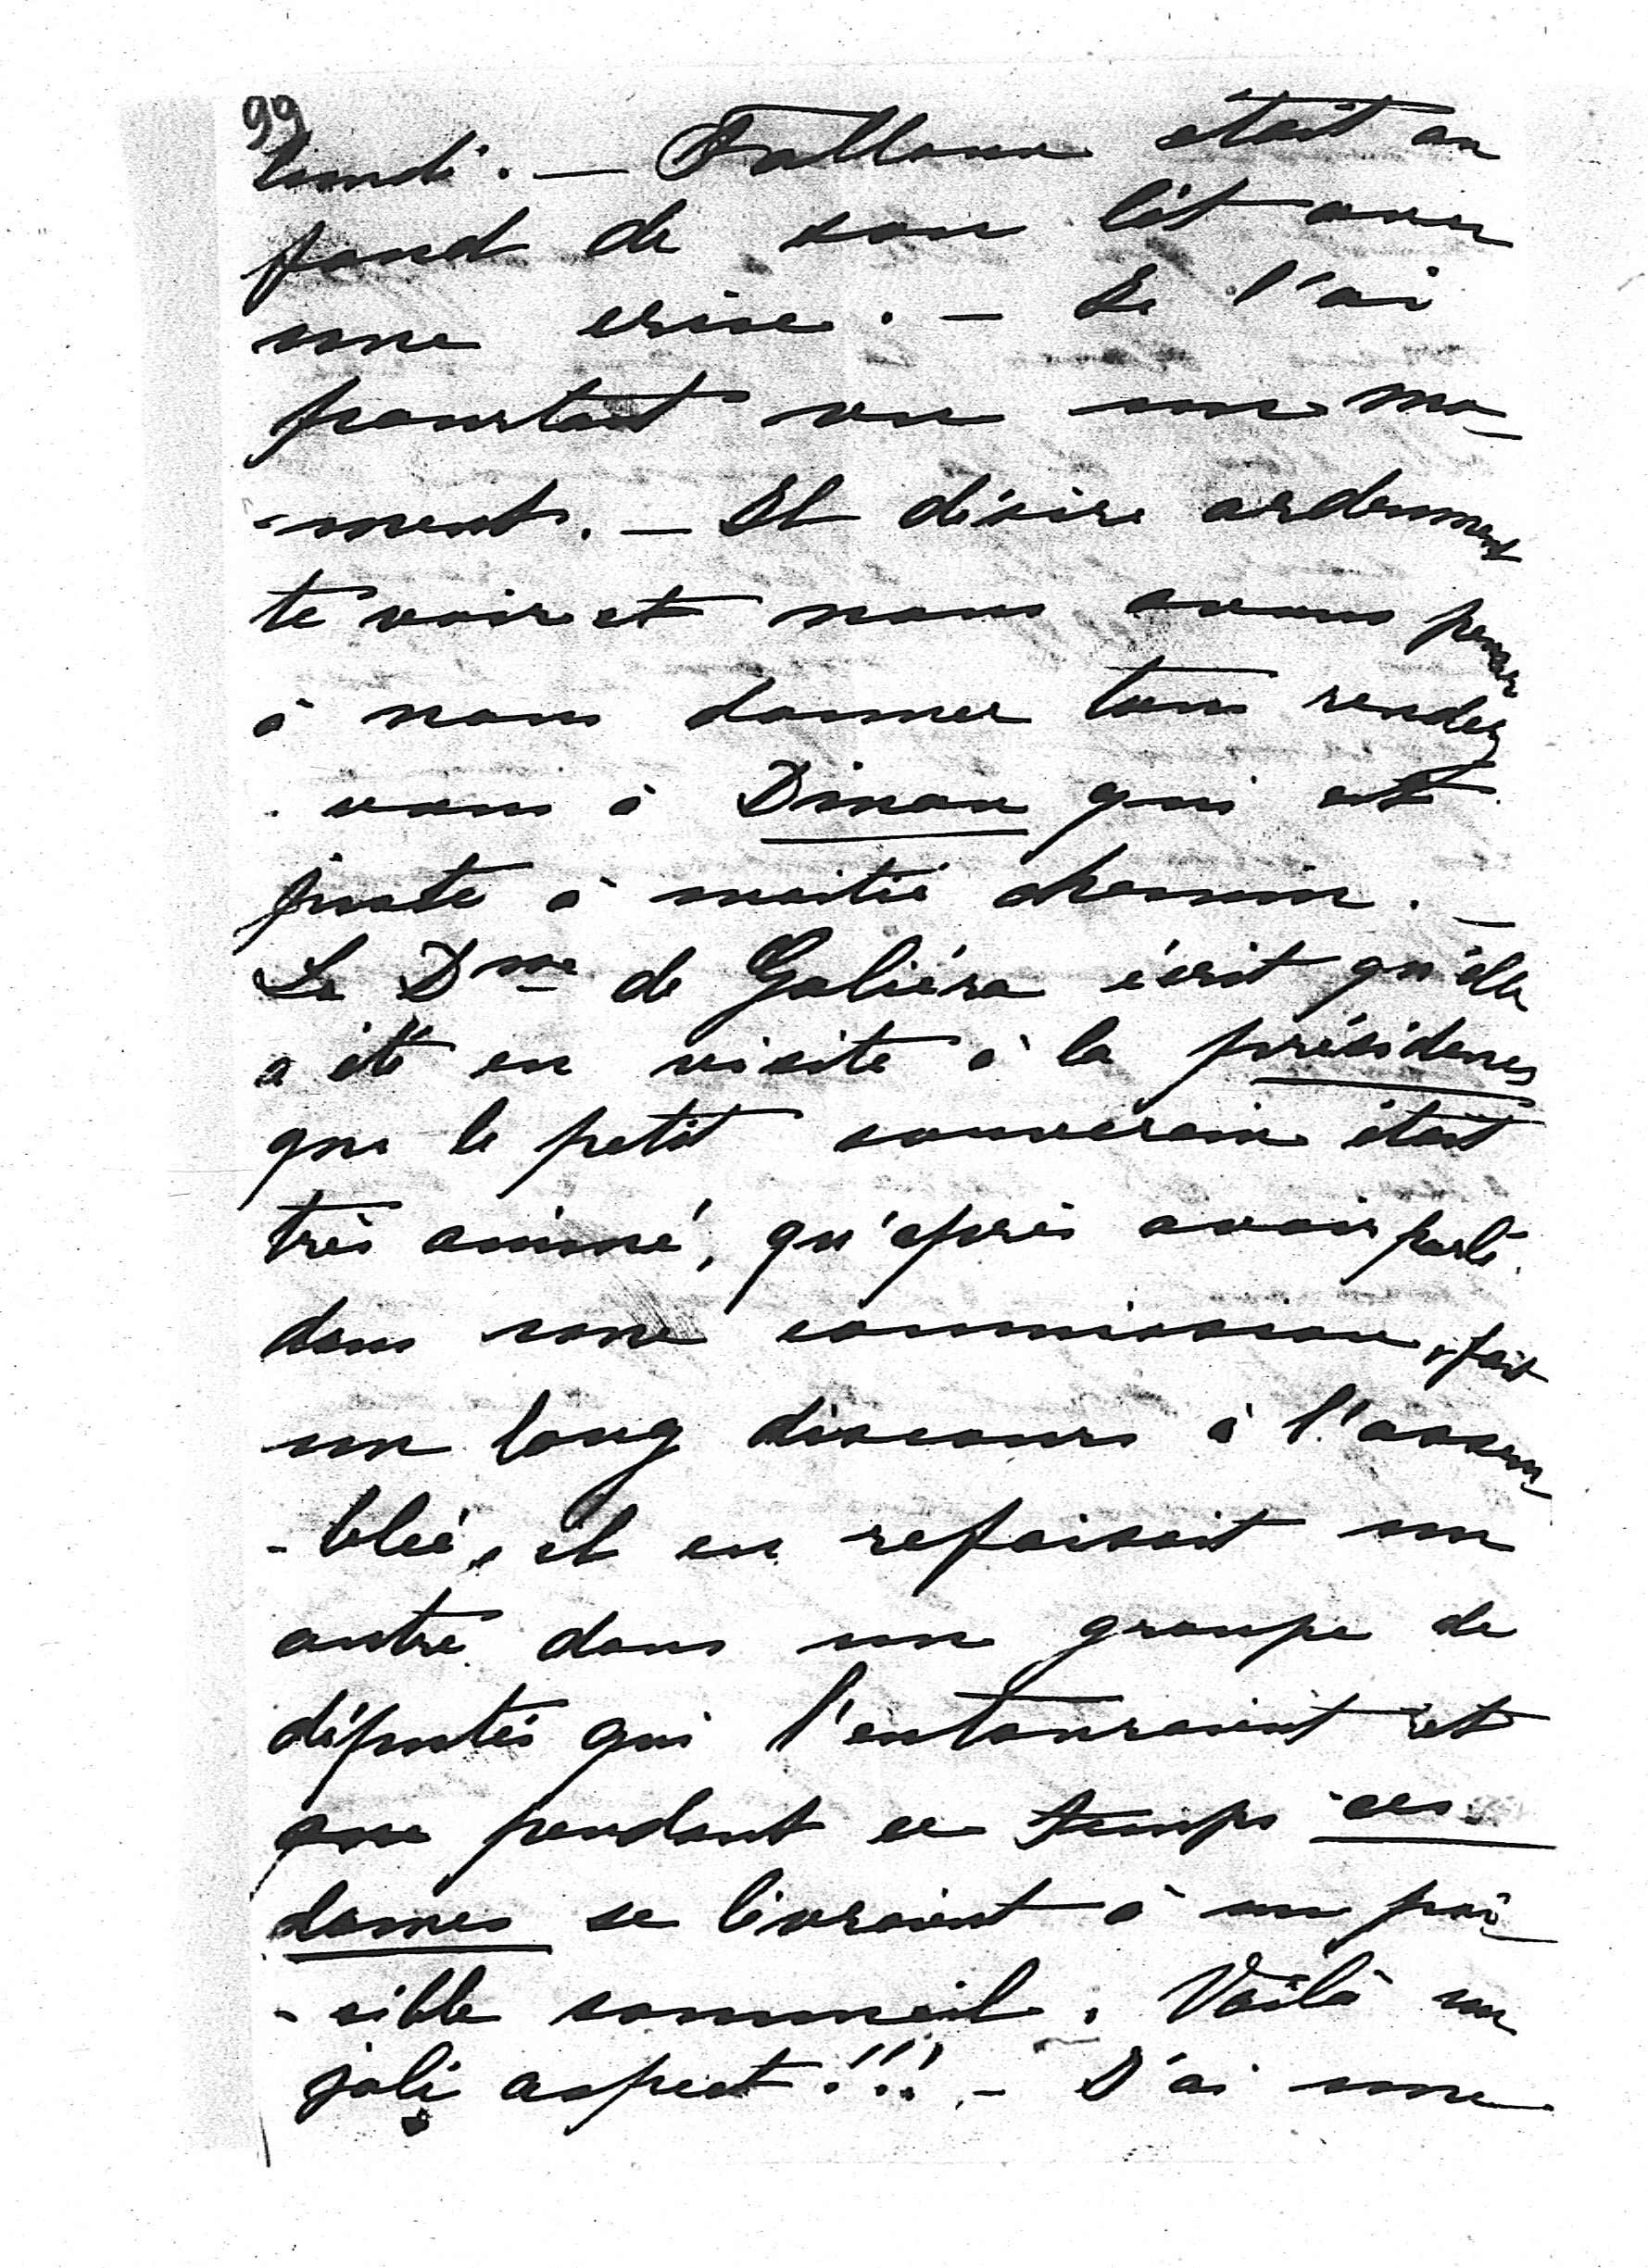 99
lundi. — Falloux était au
fond de son lit avec
une crise. — Je l'ai
pourtant vu un mo-
-ment. — Il désire ardemment
te voir et nous avons pensé
à nous donner tous rendez
vous à Dinan qui est
juste à moitié chemin. —
La Dsse de Galiéra écrit qu'elle
a été en visite à la présidence
que le petit souverain était
très animé, qu'après avoir parlé
dans une commission, fait
un long discours à l'assem
-blée, il en refaisait un
autre dans un groupe de
députés qui l'entouraient et
que pendant ce temps ces
dames se livraient à un pai-
-sible sommeil. Voilà un
joli aspect!!! — J'ai une